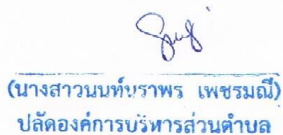 (นางสาวนนท์บราพร เพชรมณี)
ปลัดองค์การบริหารส่วนตำบล